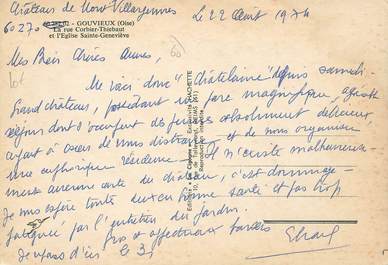 Château de Mont-Villargennes
60270 - GOUVIEUX (Oise)
La rue Corbier-Thiebaut
et l'Eglise Sainte-Geneviève
Le 22 Août 1974
Mes Bien Chères Amies,
Me voici donc "châtelaine" depuis samedi.
Grand château, possédant un parc magnifique, agréable
séjour dont s'occupent des absolument délicieux,
ayant à coeur de nous distraire et de nous organiser
une euphorique résidence. Il n'existe malheureuse-
ment aucune carte du château, c'est dommage.
Je vous espère toute deux en bonne santé et pas trop
fatiguée par l'entretien du jardin.
Gros et affectueux baisers
Je pars d'ici le 31